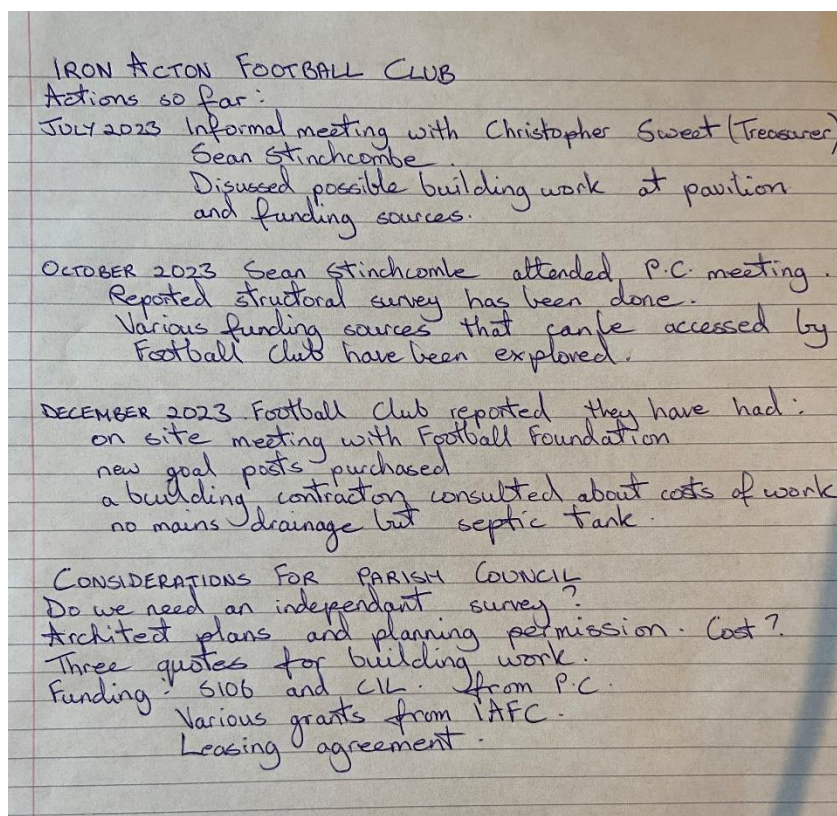 IRON ACTON FOOTBALL CLUB
Actions so far:
JULY 2023 Informal meeting with Christopher Sweet (Treasurer)
Sean Stinchcombe.
Disussed possible building work at pavilion
and funding sources.
OCTOBER 2023 Sean Stinchcombe attended P.C. meeting.
Reported structural survey has been done.
Various funding sources that can be accessed by
Football Club have been explored.
DECEMBER 2023. Football Club reported they have had:
on site meeting with Football Foundation
new goal posts purchased
a building contractor consulted about costs of work
no mains drainage but septic tank.
CONSIDERATIONS FOR PARISH COUNCIL
Do we need an independant survey?
Architect plans and planning permission. Cost?
Three quotes for building work.
Funding: S106 and CIL. from P.C.
Various grants from IAFC.
Leasing agreement.